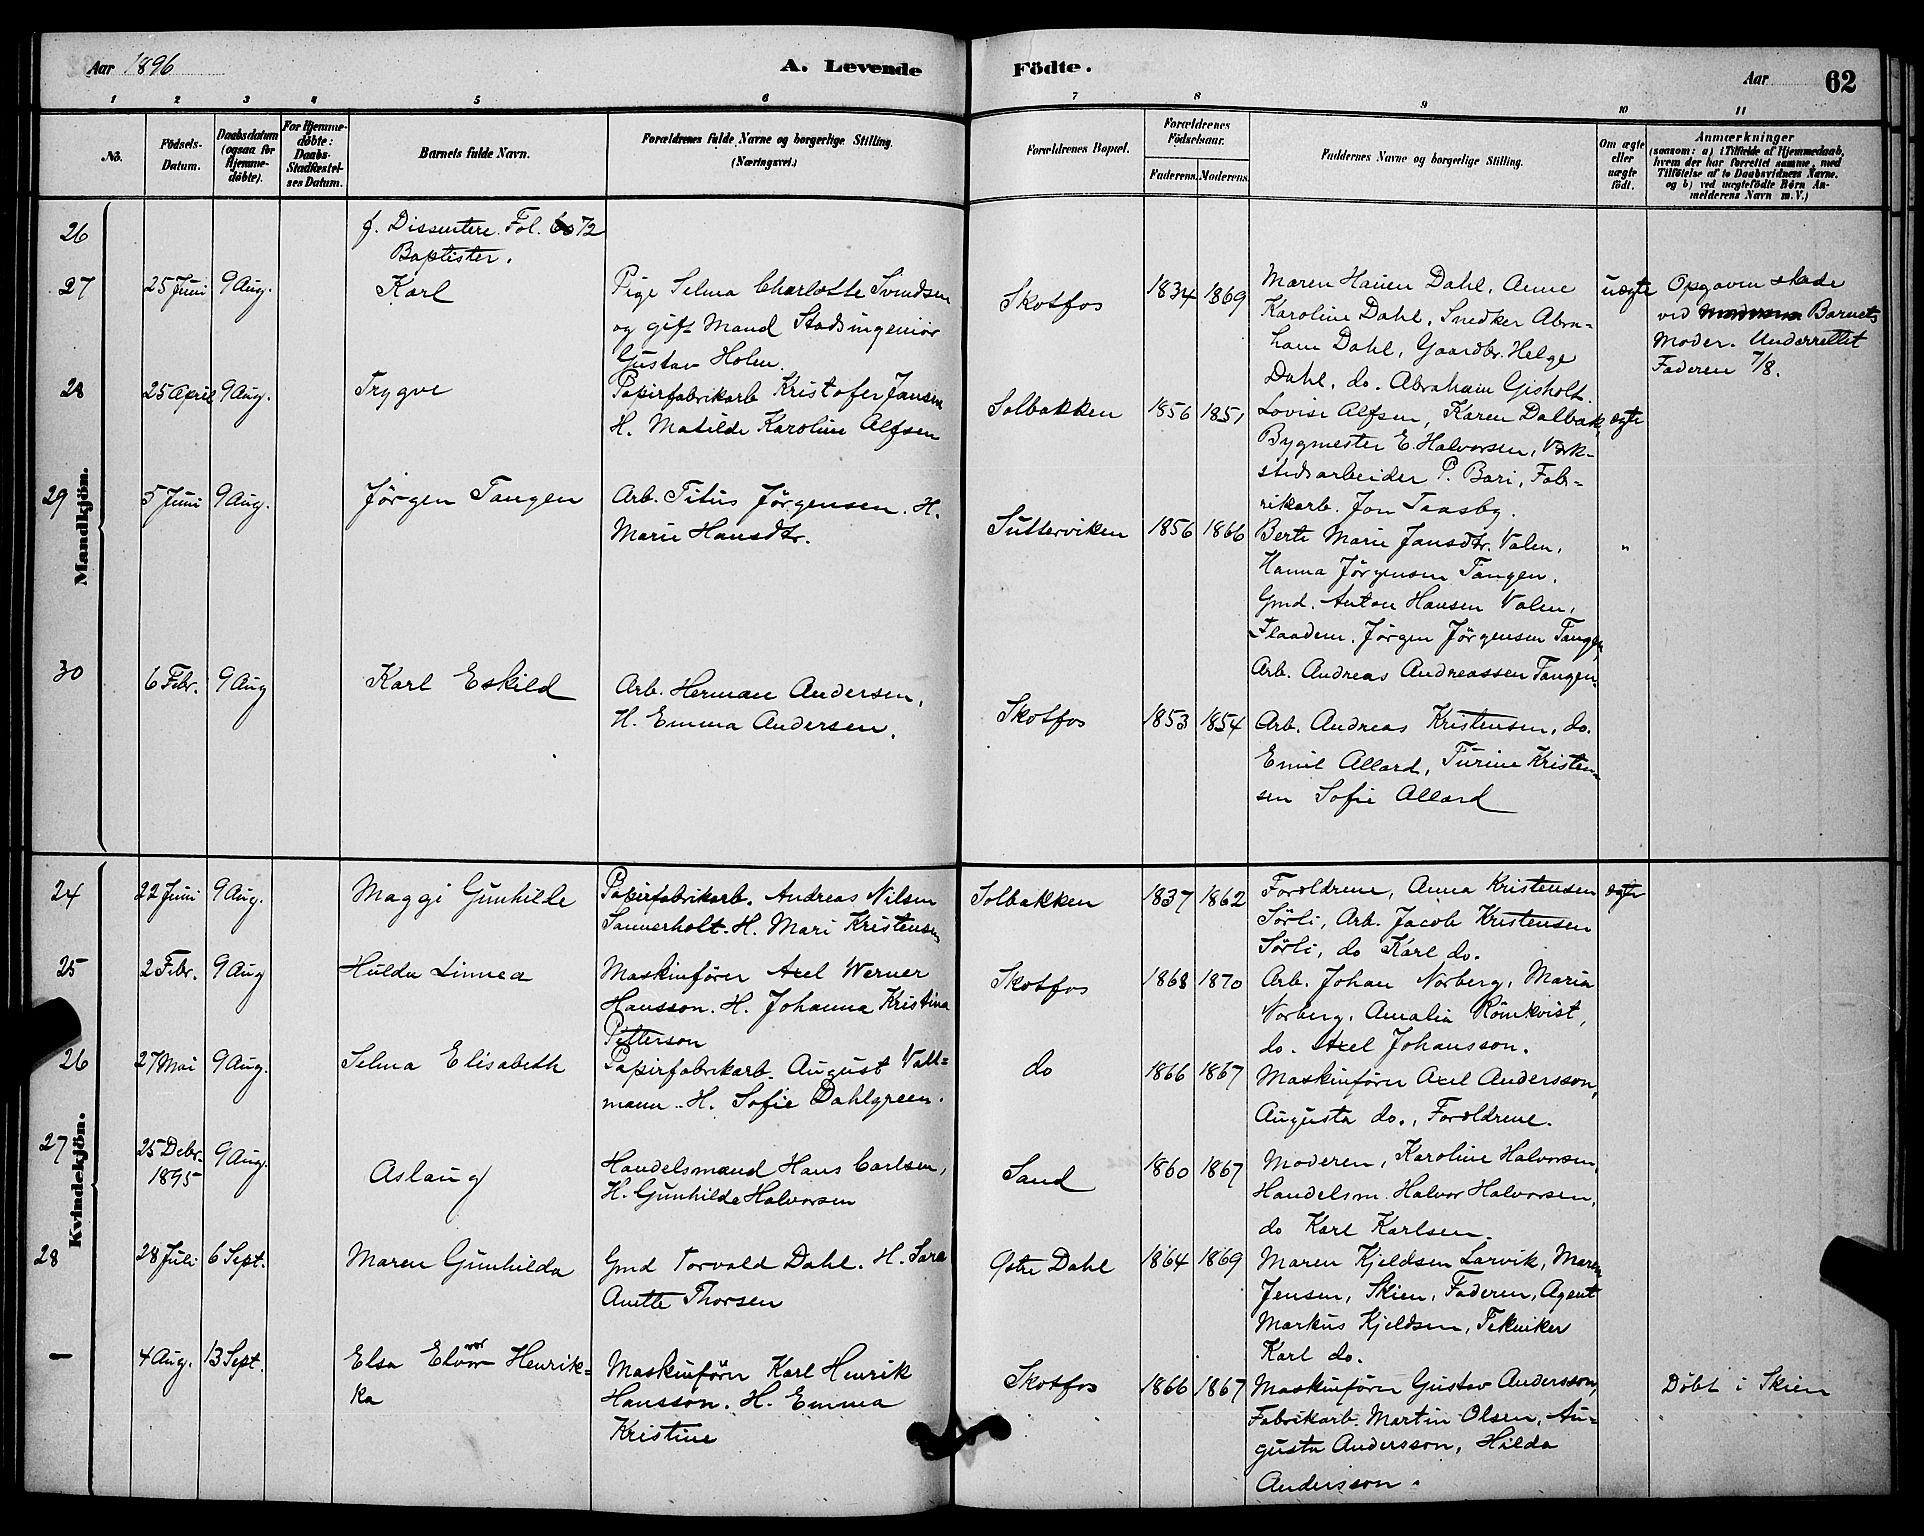 Aar 1896
A. Levende
Födte.
Aar 62
1 2 3 4 5 6 7 8 9 10 11
No.
Födsels-Datum.
Daabsdatum (ogsaa for Hjemme-döbte).
For Hjemme-döbte: Daabs-Stadfæstel-ses Datum.
Barnets fulde Navn.
Forældrenes fulde Navne og borgerlige Stilling. (Næringsvei.)
Forældrenes Bopæl.
Forældrenes Födselsaar.
Faderens. Moderens.
Faddernes Navne og borgerlige Stilling.
Om ægte eller uægte födt.
Anmærkninger
(saasom: a) i Tilfælde af Hjemmedaab,
hvem der har forrettet samme, med
Tilföielse af to Daabsvidners Navne.
og b) ved uægtefödte Börn An-
melderens Navn m. V.)
Mandkjön.
26
f. Dissentere. Fol. 72
Baptister.
27 25 Juni 9 Aug. Karl
Pige Selma Charlotte Svendsen
og gift Mand Stadsingeniör
Gustav Holm.
Skotfos 1834 1869
Maren Hauen Dahl, Anne
Karoline Dahl, Snedker Abra-
ham Dahl, Gaardbr. Helge
Dahl, do. Abraham Gisholt.
uægte
Opgaven skede
ved Barnets
Moder. Underrettet
Faderen 7/8.
28 25 April 9 Aug. Trygve
Papirfabrikarb Kristofer Jansen
H. Matilde Karoline Alfsen
Solbakken 1856 1851
Lovise Alfsen, Karen Dalbak,
Bygmester E. Halvorsen, Værk-
stedsarbeider P. Bari, Fab-
rikarb. Jon Taasby.
ægte
29 5 Juni 9 Aug. Jørgen Tangen
Arb. Titus Jørgensen. H.
Marie Hansdtr.
Sutterviken 1856 1866
Berte Marie Jansdtr. Valen,
Hanna Jørgensen Tangen,
Gmd. Anton Hansen Valen,
Flaadem. Jørgen Jørgensen Tangen,
Arb. Andreas Andreassen Tangen.
"
30 6 Febr. 9 Aug Karl Eskild
Arb. Herman Andersen,
H. Emma Andersen.
Skotfos 1853 1854
Arb. Andreas Kristensen, do.
Emil Allard, Turine Kristen-
sen Sofie Allard
Kvindekjön.
24 22 Juni 9 Aug. Maggi Gunhilde
Papirfabrikarb. Andreas Nilsen
Sannerholt. H. Mari Kristensen
Solbakken 1837 1862
Foroldrene, Anna Kristensen
Sørli, Arb. Jacob Kristensen
Sørli, do Karl do.
ægte
25 2 Febr. 9 Aug Hulda Linnea
Maskinfören Axel Werner
Hansson. H. Johanna Kristina
Petterson
Skotfos 1868 1870
Arb. Johan Norberg, Maria
Norberg, Amalia Rönkvist,
do. Axel Johansson.
26 27 Mai 9 Aug. Selma Elisabeth
Papirfabrikarb. August Vall-
mann. H. Sofie Dahlgreen.
do 1866 1867
Maskinfören Axel Andersson,
Augusta do., Foroldrene.
27 25 Debr. 1895 9 Aug. Aslaug
Handelsmand Hans Carlsen,
H. Gunhilde Halvorsen
Sand 1860 1867
Moderen, Karoline Halvorsen,
Handelsm. Halvor Halvorsen,
do Karl Karlsen.
28 28 Juli 6 Sept. Maren Gunhilda
Gmd Torvald Dahl. H. Sara
Anette Thorsen
Østre Dahl 1864 1869
Maren Kjeldsen Larvik, Maren
Jensen, Skien, Faderen, Agent
Markus Kjeldsen, Tekniker
Karl do.
— 4 Aug. 13 Sept. Elsa Elvor Henrik-
ka
Maskinfören Karl Henrik
Hansson. H. Emma
Kristine
Skotfos 1866 1867
Maskinfören Gustav Andersson,
Fabrikarb. Martin Olsen, Au-
gusta Andersson, Hilda
Andersson.
Döbt i Skien